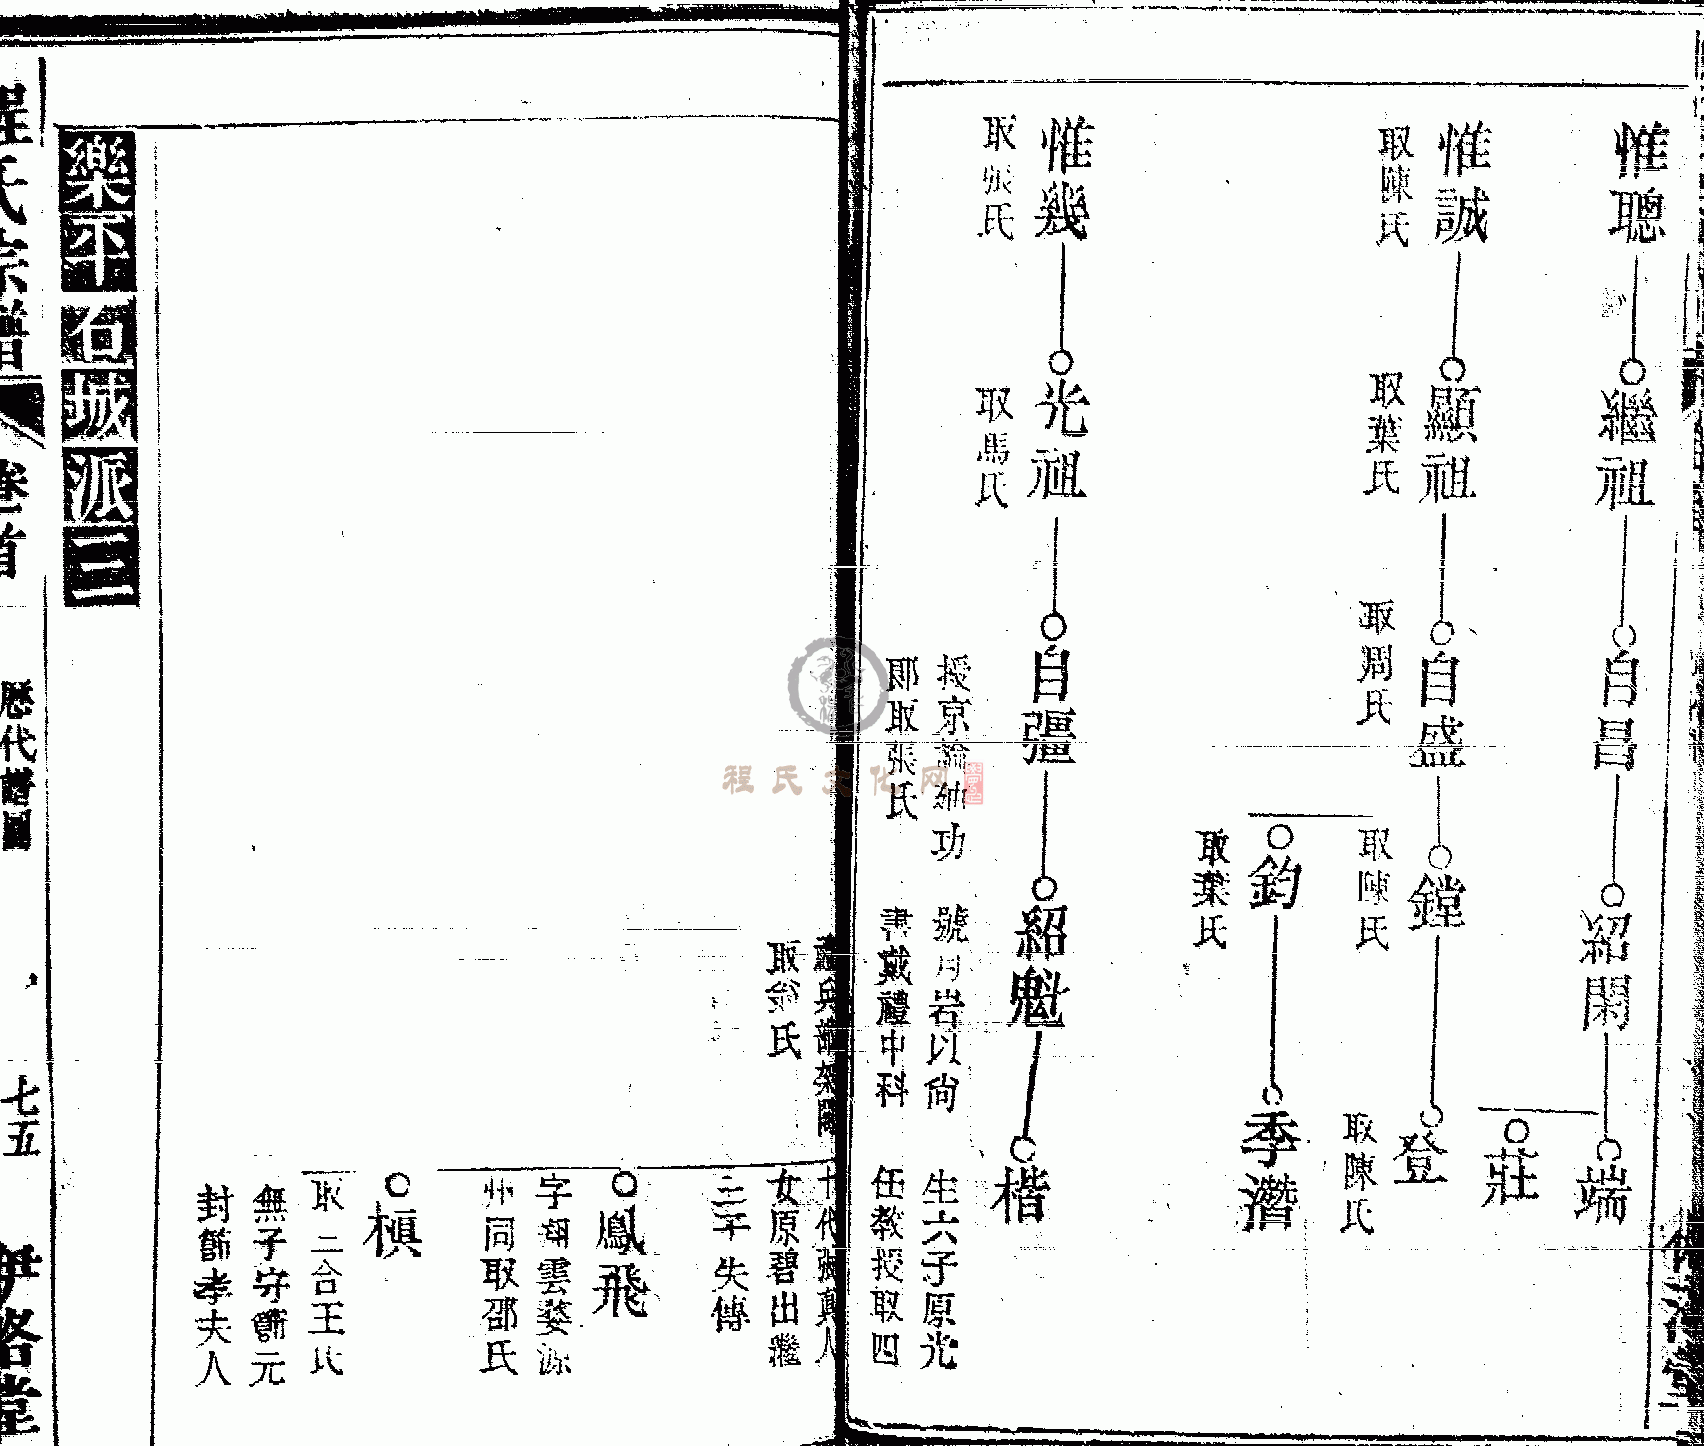 惟聰
繼祖
自昌
紹閑
端
莊
惟誠
取陳氏
顯祖
取葉氏
自盛
取周氏
鏜
取陳氏
登
取陳氏
鈞
取葉氏
季濳
惟幾
取張氏
光祖
取馬氏
自彊
授京 功
郎取張氏
紹魁
號月岩以尙
書戴禮中科
楷
生六子原光
任教授取四
十代張真人
女原碧出繼
三平失傳
取翁氏
鳳飛
字翊雲婺源
州同取邵氏
槙
取二合王氏
無子守節元
封節孝夫人
樂平石城派三
程氏宗譜
卷首
歷代譜圖
七五
伊洛堂
程氏文化网